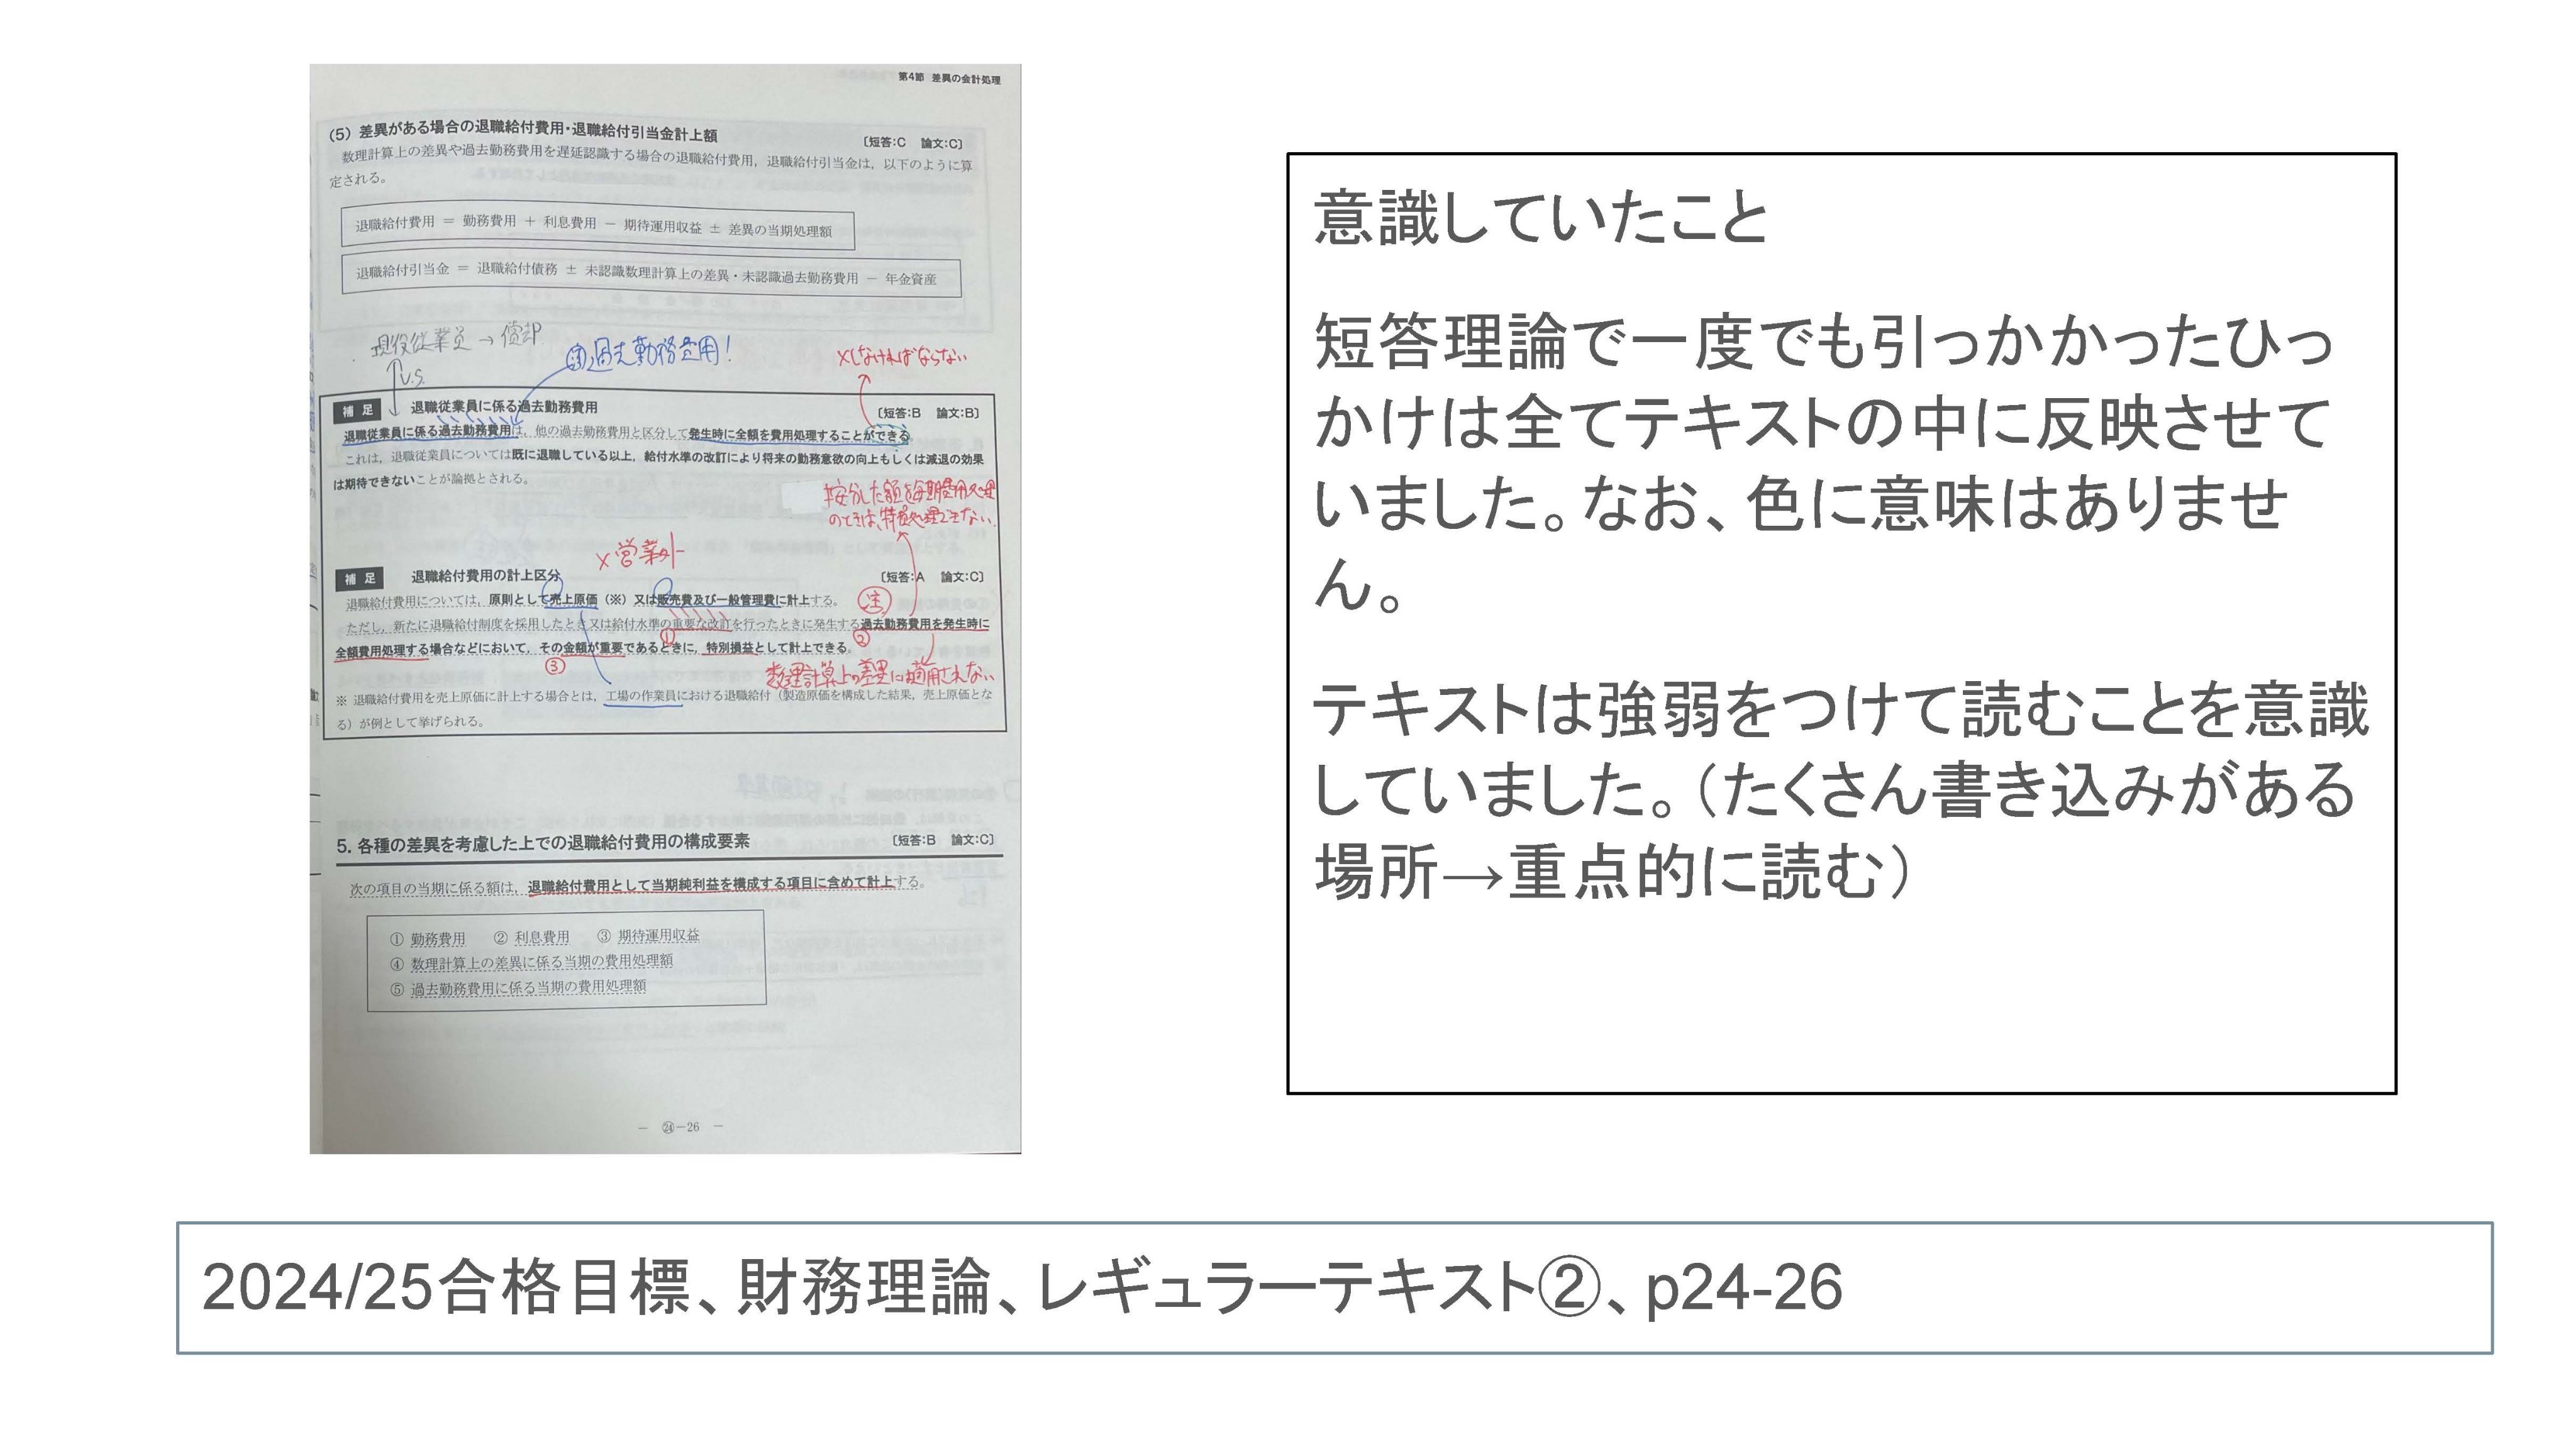 第4節 差異の会計処理
(5) 差異がある場合の退職給付費用・退職給付引当金計上額
〔短答:C 論文:C〕
数理計算上の差異や過去勤務費用を遅延認識する場合の退職給付費用，退職給付引当金は，以下のように算
定される。
退職給付費用 ＝ 勤務費用 ＋ 利息費用 － 期待運用収益 ± 差異の当期処理額
退職給付引当金 ＝ 退職給付債務 ± 未認識数理計算上の差異・未認識過去勤務費用 － 年金資産
現役従業員→償却
V.S.
過去勤務費用！
×しなければならない
補足 退職従業員に係る過去勤務費用
〔短答:B 論文:B〕
退職従業員に係る過去勤務費用は，他の過去勤務費用と区分して発生時に全額を費用処理することができる
これは，退職従業員については既に退職している以上，給付水準の改訂により将来の勤務意欲の向上もしくは減退の効果
は期待できないことが論拠とされる。
按分した額を毎期費用処理
のときは、特損処理できない。
×営業外
補足 退職給付費用の計上区分
〔短答:A 論文:C〕
退職給付費用については，原則として売上原価（※）又は販売費及び一般管理費に計上する。
注
ただし，新たに退職給付制度を採用したとき又は給付水準の重要な改訂を行ったときに発生する過去勤務費用を発生時に
① ②
全額費用処理する場合などにおいて，その金額が重要であるときに，特別損益として計上できる。
③
数理計算上の差異には適用されない
※ 退職給付費用を売上原価に計上する場合とは，工場の作業員における退職給付（製造原価を構成した結果，売上原価とな
る）が例として挙げられる。
5. 各種の差異を考慮した上での退職給付費用の構成要素
〔短答:B 論文:C〕
次の項目の当期に係る額は，退職給付費用として当期純利益を構成する項目に含めて計上する。
① 勤務費用 ② 利息費用 ③ 期待運用収益
④ 数理計算上の差異に係る当期の費用処理額
⑤ 過去勤務費用に係る当期の費用処理額
－ ㉔－26 －
意識していたこと
短答理論で一度でも引っかかったひっ
かけは全てテキストの中に反映させて
いました。なお、色に意味はありませ
ん。
テキストは強弱をつけて読むことを意識
していました。（たくさん書き込みがある
場所→重点的に読む）
2024/25合格目標、財務理論、レギュラーテキスト②、p24-26